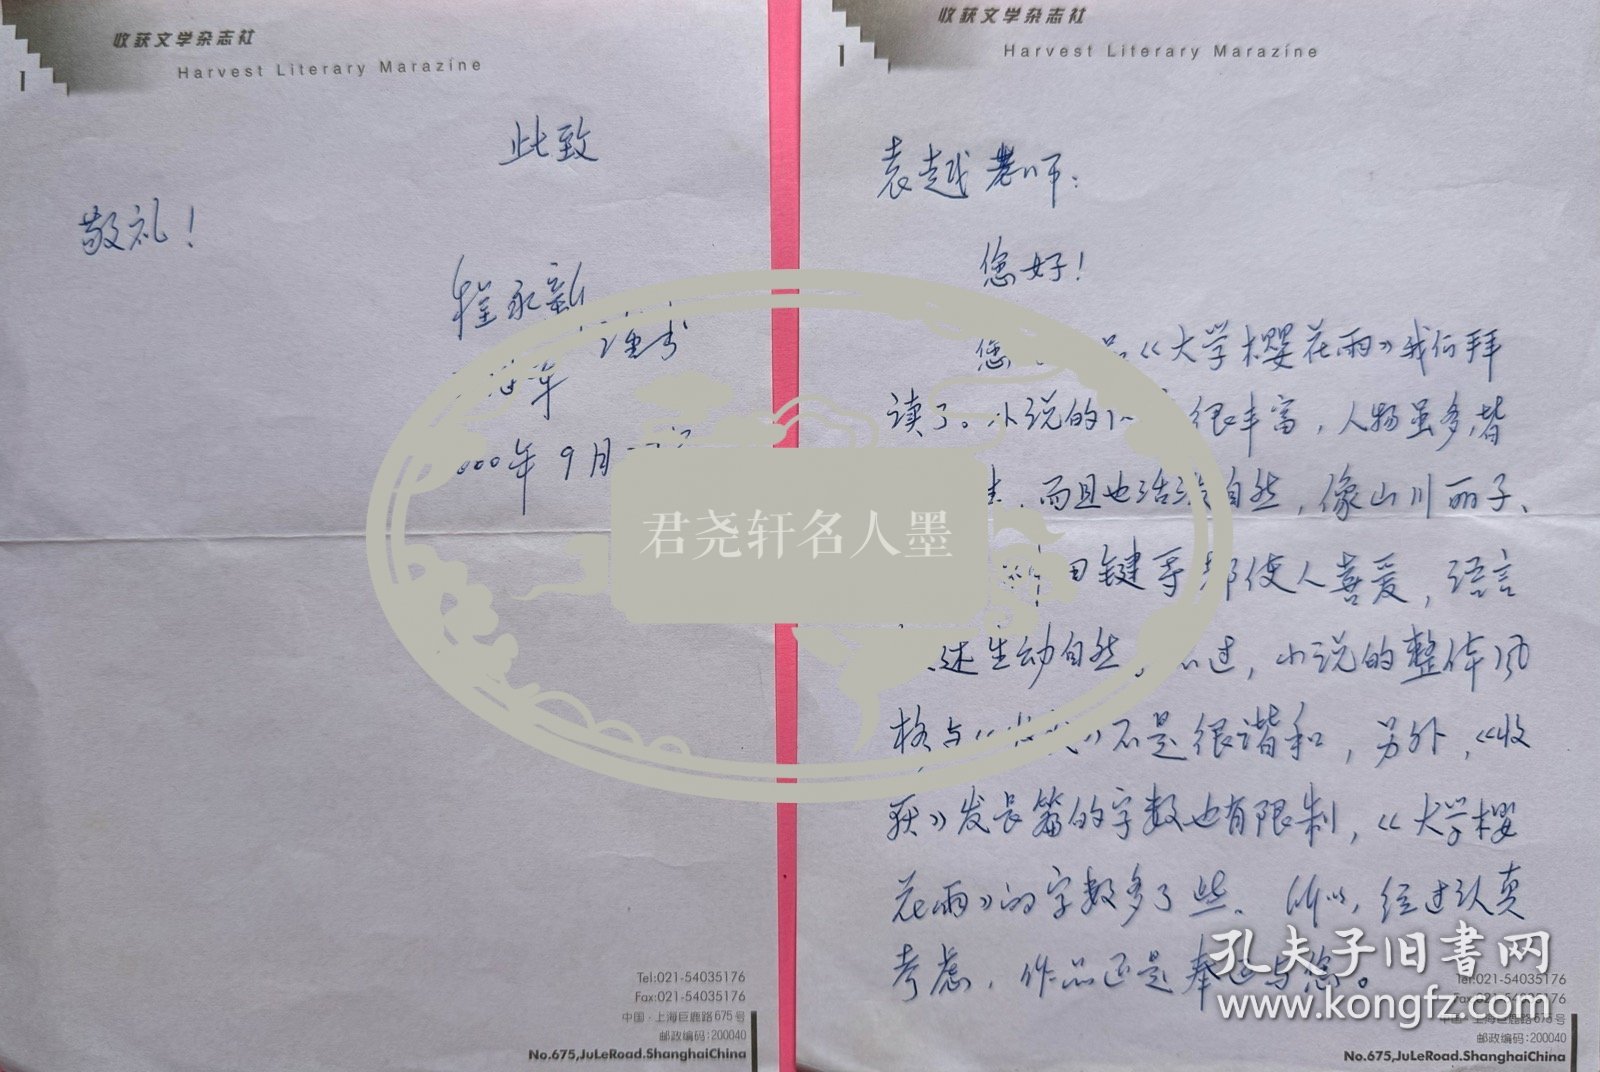 收获文学杂志社
Harvest Literary Marazine
1
此致
敬礼！
程永新
000年9月
Tel:021-54035176
Fax:021-54035176
中国·上海巨鹿路675号
邮政编码:200040
No.675,JuLeRoad.ShanghaiChina
收获文学杂志社
Harvest Literary Marazine
1
袁越老师：
您好！
您 品《大学樱花雨》我们拜
读了。小说的 很丰富，人物虽多，皆
而且也活泼自然，像山川丽子、
田键等都使人喜爱，语言
述生动自然。不过，小说的整体风
格与《收获》不是很谐和，另外，《收
获》发长篇的字数也有限制，《大学樱
花雨》的字数多了些。所以，经过认真
考虑，作品还是奉还与您。
Tel:021-54035176
Fax:021-54035176
中国·上海巨鹿路675号
邮政编码:200040
No.675,JuLeRoad.ShanghaiChina
君尧轩名人墨
孔夫子旧书网
www.kongfz.com